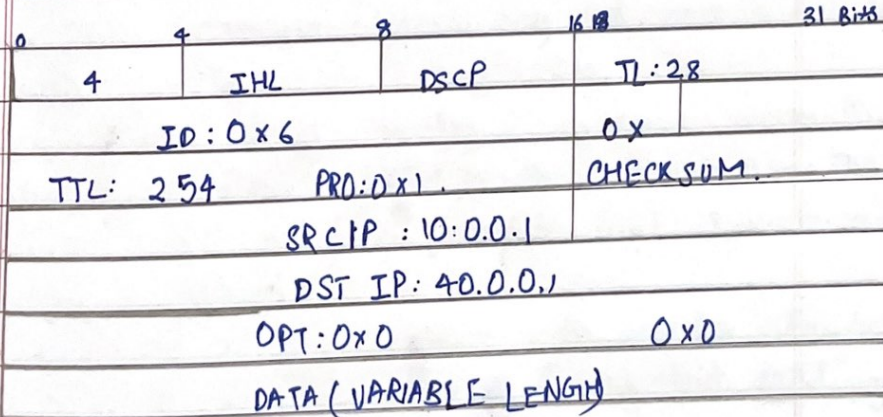 0 4 8 16 18 31 Bits
4 IHL DSCP TL:28
ID:0x6 0x
TTL: 254 PRO:0x1. CHECKSUM.
SRCIP : 10:0.0.1
DST IP: 40.0.0.1
OPT:0x0 0x0
DATA (VARIABLE LENGH)